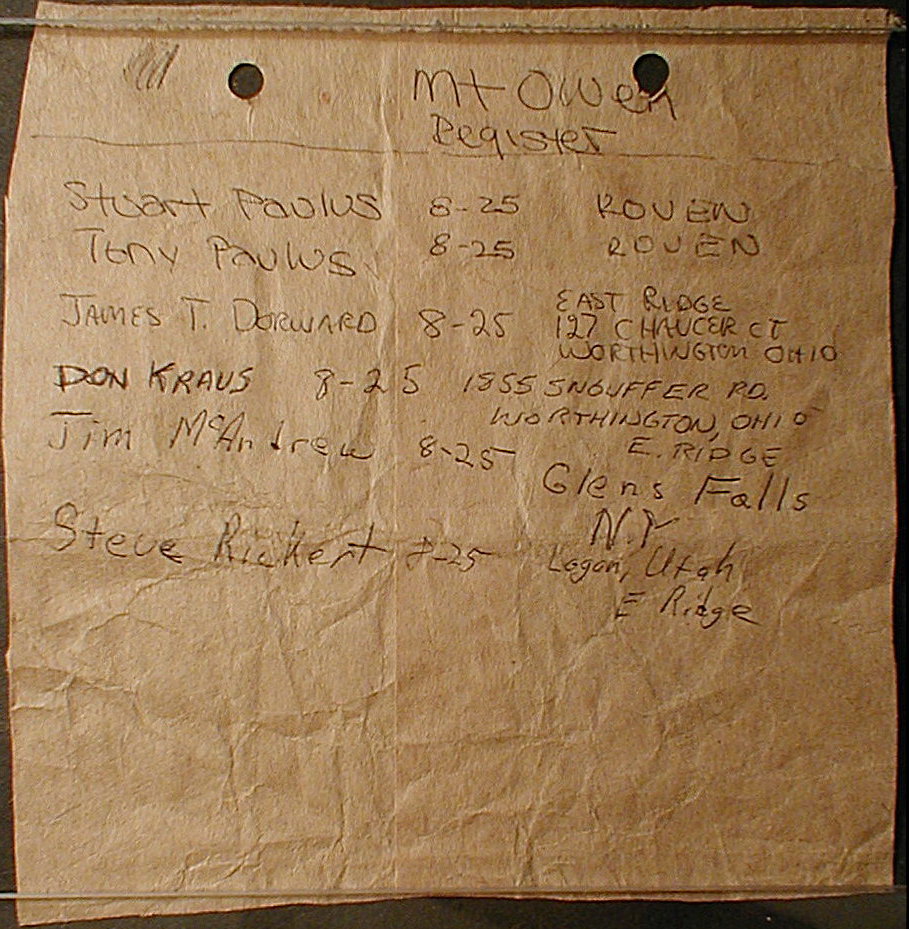 Mt Owen
Register
Stuart Paulus 8-25 ROUEN
Tony Paulus 8-25 ROUEN
JAMES T. DORWARD 8-25 EAST RIDGE
127 CHAUCER CT
WORTHINGTON OHIO
DON KRAUS 8-25 1855 SNOUFFER RD.
WORTHINGTON, OHIO
E. RIDGE
Jim McAndrew 8-25
Glens Falls
N.Y
Steve Rickert 8-25 Logan, Utah
E Ridge